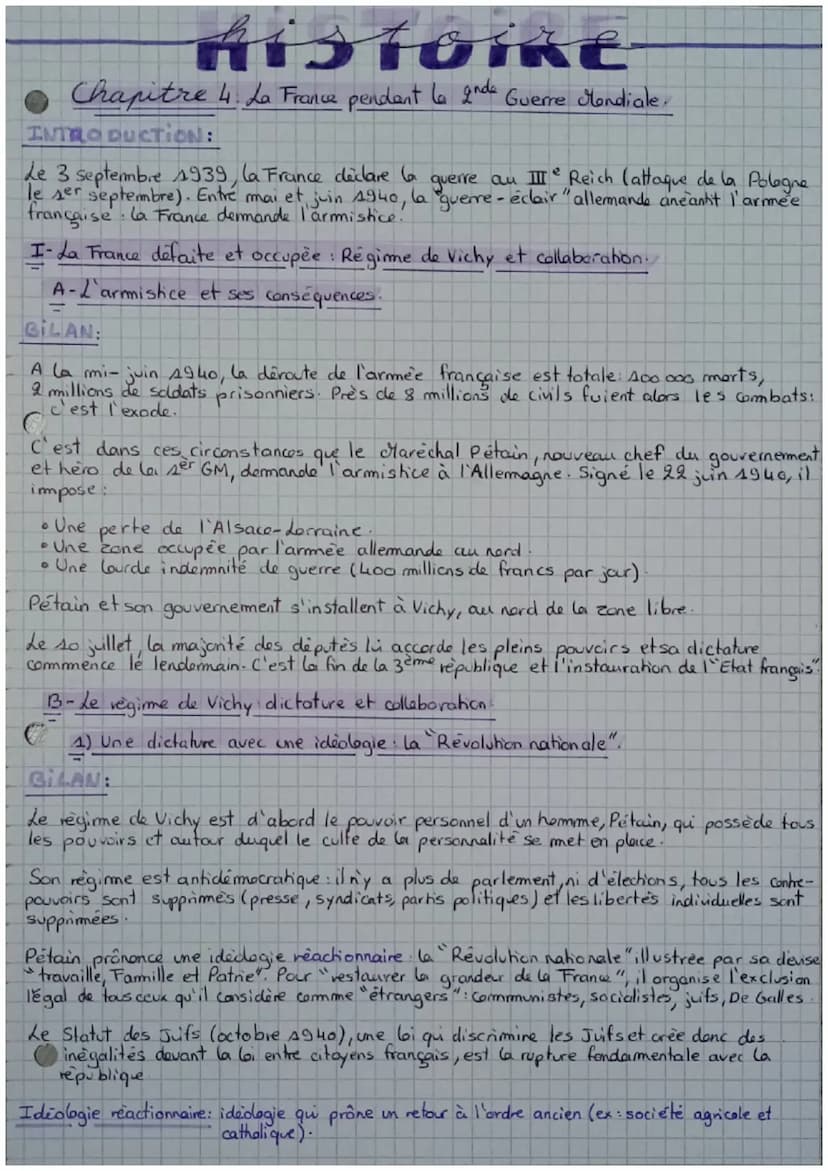 histoire
HISTOIRE
Chapitre 4: La France pendant la 2nde Guerre Mondiale.
INTRODUCTION:
Le 3 septembre 1939, la France déclare la guerre au IIIe Reich (attaque de la Pologne
le 1er septembre). Entre mai et juin 1940, la "guerre-éclair" allemande anéantit l'armée
française : la France demande l'armistice.
I- La France défaite et occupée : Régime de Vichy et collaboration.
A- L'armistice et ses conséquences.
BILAN:
A la mi-juin 1940, la déroute de l'armée française est totale: 100 000 morts,
2 millions de soldats prisonniers. Près de 8 millions de civils fuient alors les combats:
c'est l'exode.
C'est dans ces circonstances que le Maréchal Pétain, nouveau chef du gouvernement
et héro de la 1er GM, demande l'armistice à l'Allemagne. Signé le 22 juin 1940, il
impose :
• Une perte de l'Alsace-Lorraine.
• Une zone occupée par l'armée allemande au nord.
• Une lourde indemnité de guerre (400 millions de francs par jour).
Pétain et son gouvernement s'installent à Vichy, au nord de la zone libre.
Le 10 juillet, la majorité des députés lui accorde les pleins pouvoirs et sa dictature
commence le lendemain. C'est la fin de la 3ème république et l'instauration de l'"Etat français".
B- Le régime de Vichy : dictature et collaboration.
1) Une dictature avec une idéologie : la "Révolution nationale".
BILAN:
Le régime de Vichy est d'abord le pouvoir personnel d'un homme, Pétain, qui possède tous
les pouvoirs et autour duquel le culte de la personnalité se met en place.
Son régime est antidémocratique : il n'y a plus de parlement, ni d'élections, tous les contre-
pouvoirs sont supprimés (presse, syndicats, partis politiques) et les libertés individuelles sont
supprimées.
Pétain prônonce une idéologie réactionnaire : la "Révolution nationale" illustrée par sa devise
"travaille, Famille et Patrie". Pour "restaurer la grandeur de la France", il organise l'exclusion
légal de tous ceux qu'il considère comme "étrangers" : communistes, socialistes, juifs, De Galles.
Le Statut des Juifs (octobre 1940), une loi qui discrimine les Juifs et crée donc des
inégalités devant la loi entre citoyens français, est la rupture fondamentale avec la
république.
Idéologie réactionnaire: idéologie qui prône un retour à l'ordre ancien (ex : société agricole et
catholique).